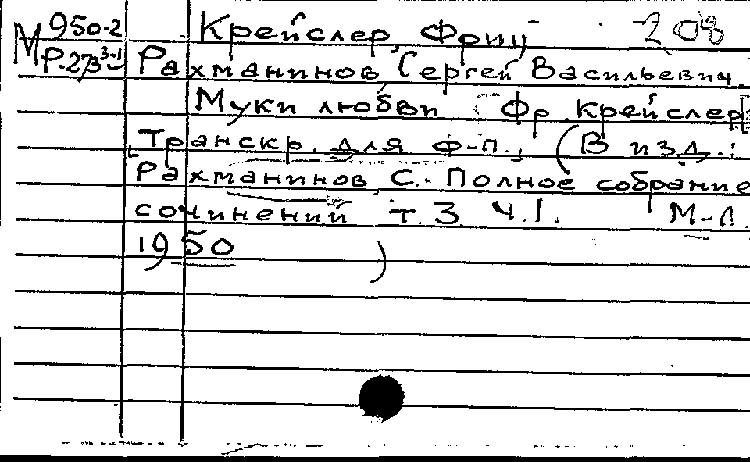 М 950-2 Крейслер, Фриц 208
Р-273 3-1 Рахманинов, Сергей Васильевич.
Муки любви [Фр. Крейслер]
[Транскр. для ф-п., (В изд.:
Рахманинов С. Полное собрание
сочинений т.3 ч.1. М-Л.
1950 )